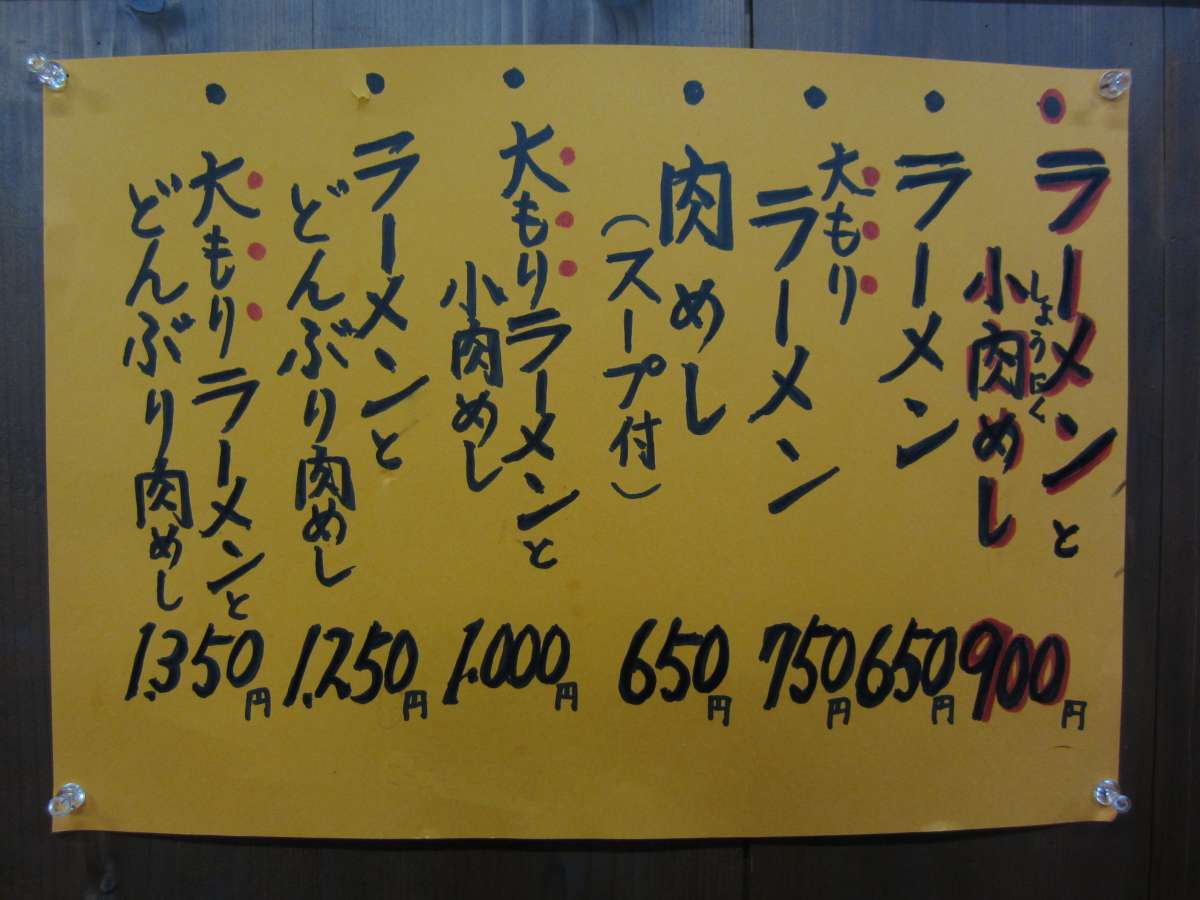 ・ラーメンと
小肉めし
しょうにく
900円
・ラーメン
650円
・大もり
ラーメン
750円
・肉めし
(スープ付)
650円
・大もりラーメンと
小肉めし
1.000円
・ラーメンと
どんぶり肉めし
1.250円
・大もりラーメンと
どんぶり肉めし
1.350円